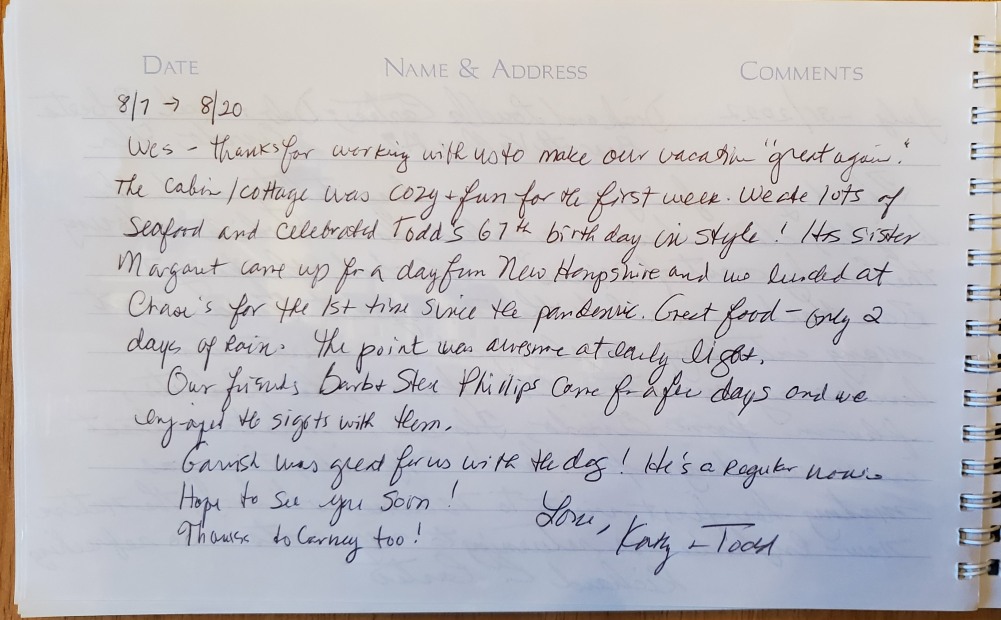 DATE NAME & ADDRESS COMMENTS
8/7 → 8/20
Wes - thanks for working with us to make our vacation "great again."
The cabin/cottage was cozy + fun for the first week. We ate lots of
Seafood and celebrated Todd's 67th birthday in style! His sister
Margaret came up for a day from New Hampshire and we lunched at
for the 1st time since the pandemic. Great food - only 2
days of rain. The point was awesome at early light.
Our friends Barb + Phillips came for a few days and we
enjoyed the sights with them.
was great for us with the dog! He's a regular now.
Hope to see you soon!
Thanks to Carney too!
Love, Kathy + Todd